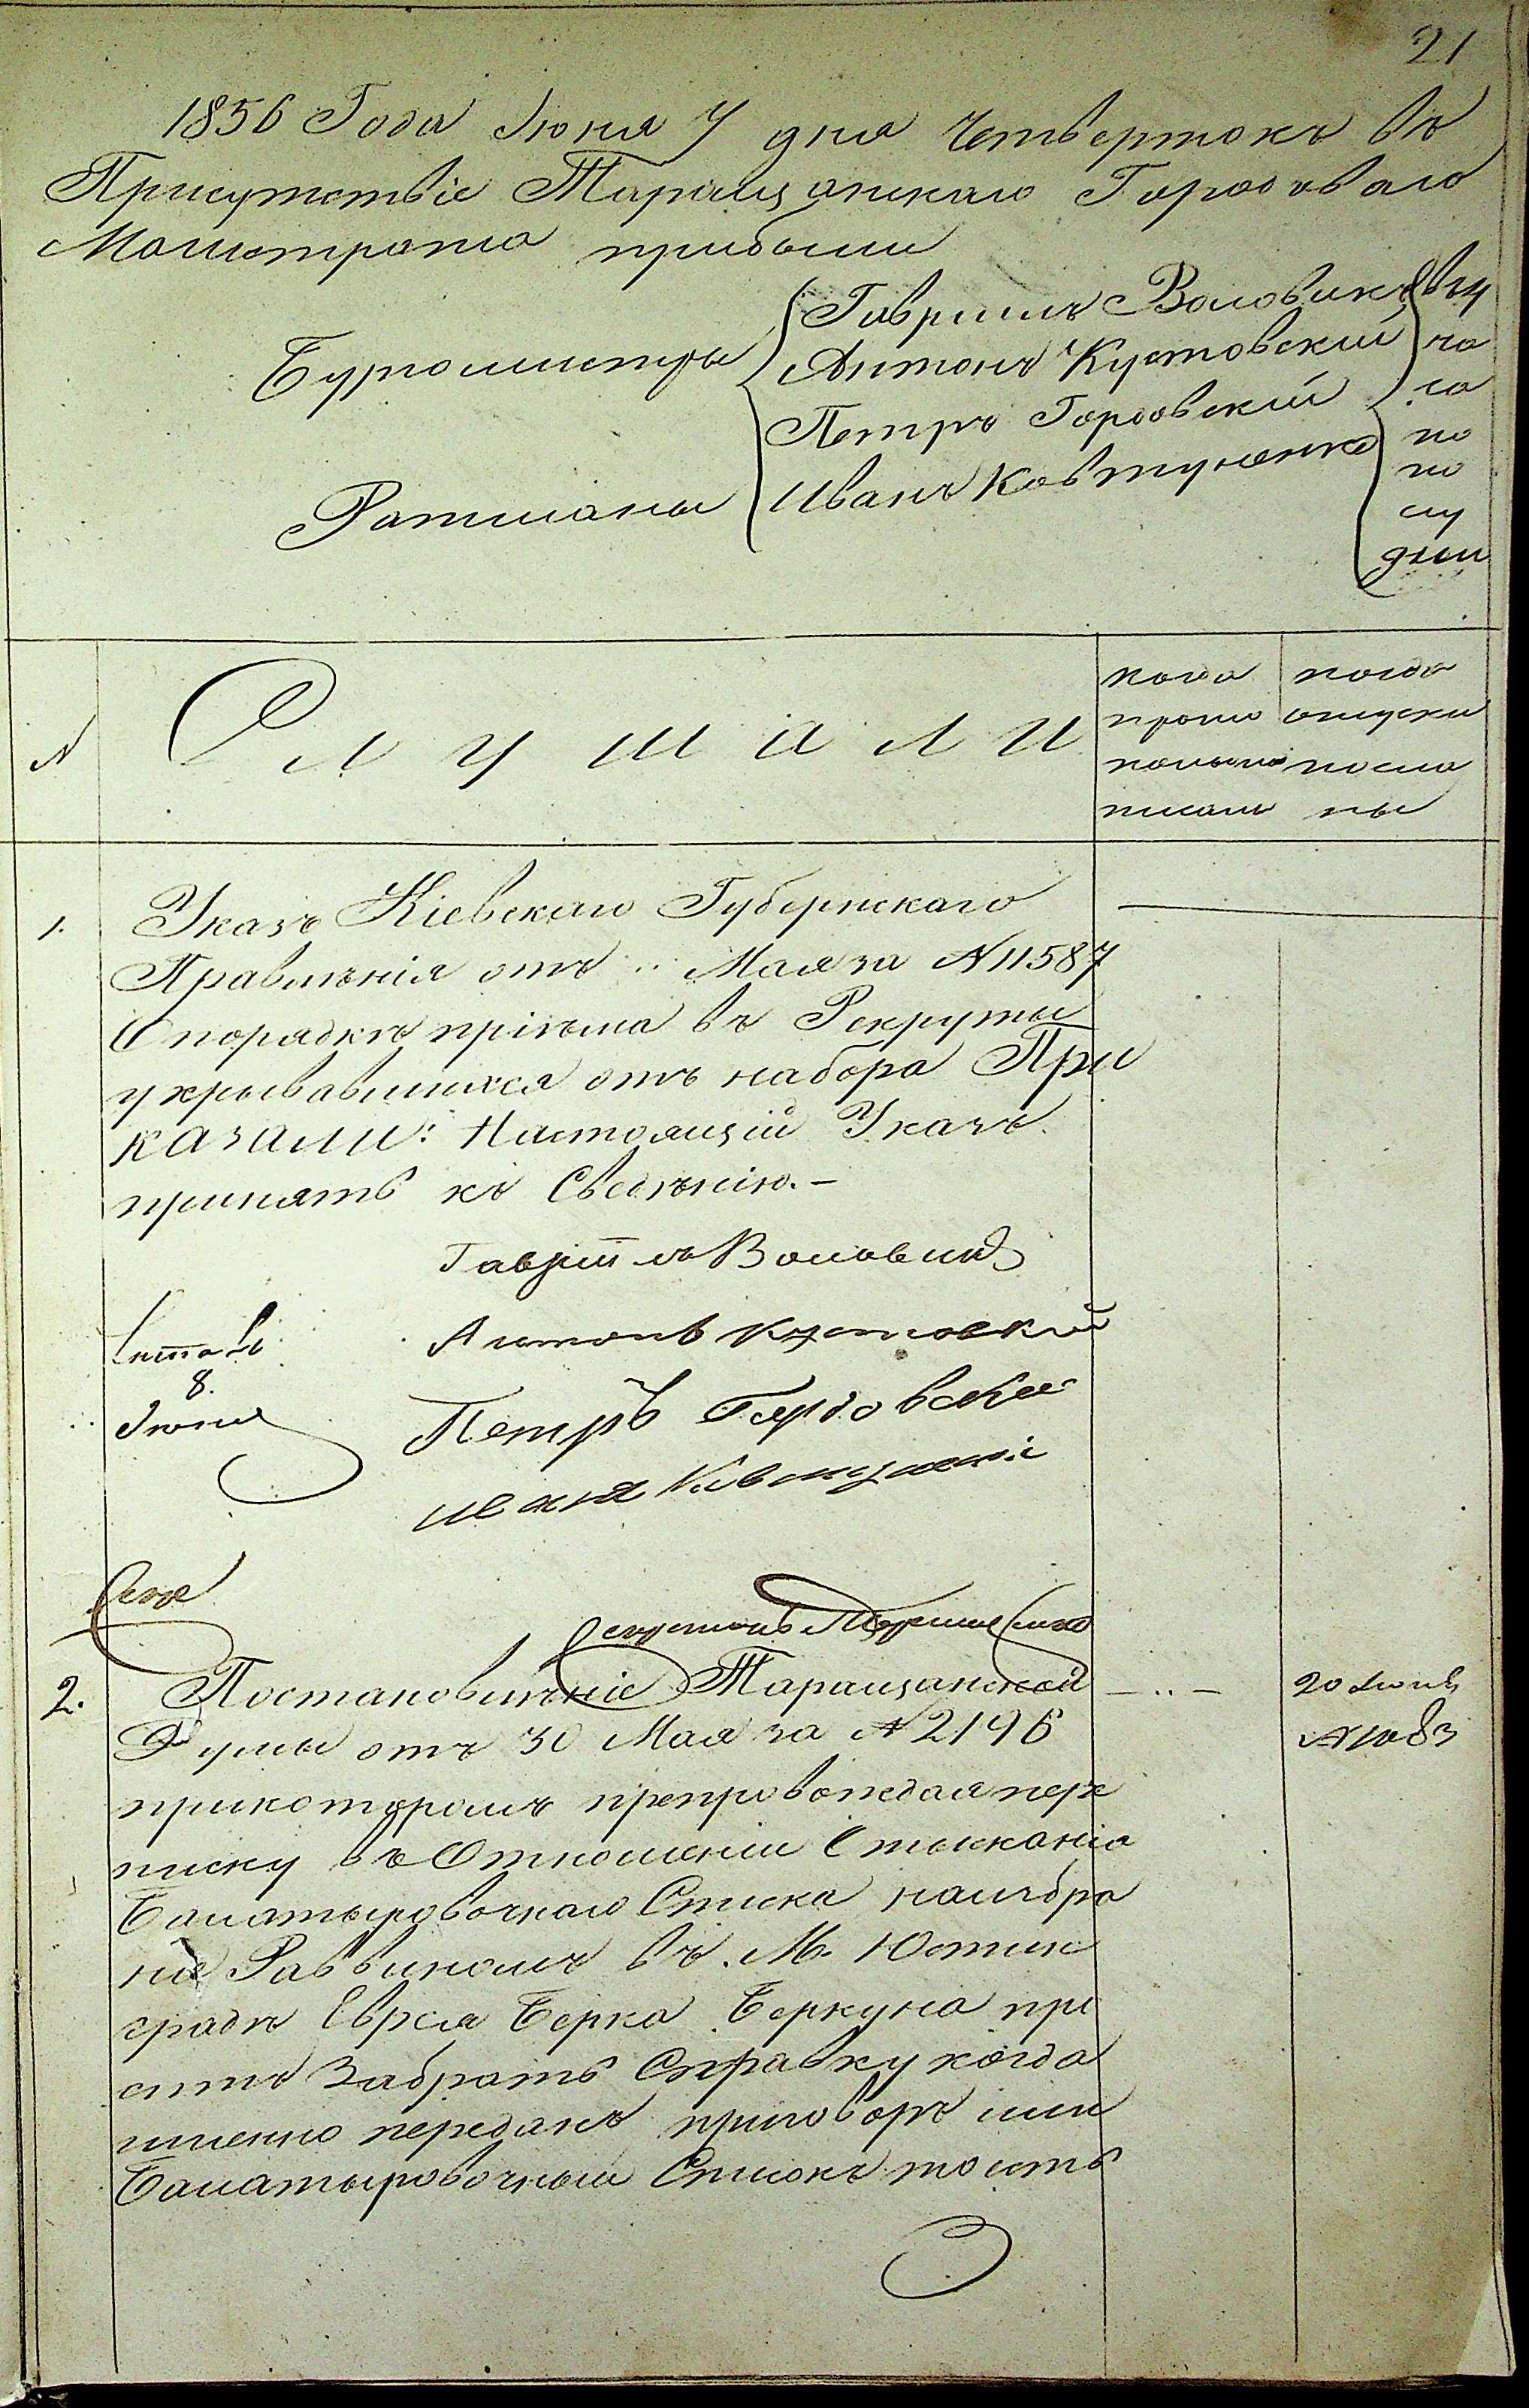 21
1856 Года Июня 7 дня Четвертокъ въ
Присутствіе Таращанскаго Городоваго
Магистрата прибыли
Бургомистры
Ратманы
Гавріилъ Воловикъ
Антонъ Кустовский
Петръ Гордовский
Иванъ Ковтуненко
въ 4
ча
са
по
по
лу
дни
N
Слушали
кога
прото
колъ
писанъ
когда
отпуски
посла
ны
1.
Указъ Кіевскаго Губернскаго
Правленія отъ .. Мая за N 11587
О порядкѣ пріема въ Рекруты
укрывавшихся отъ набора При
казали: Настоящій Указъ
принять къ Сведенію.-
Гавріилъ Воловикъ
Антонъ Кустовский
Петръ Гордовский
Иванъ Ковтуненко
Читалъ
8.
Июня
Секретарь
2.
Постановленіе Таращанской
Думы отъ 30 Мая за N 2196
прикоторомъ препровождая пере
писку въ Отношении Отыскания
Балатыровочнаго Списка наизбра
ние Раввиномъ въ М. Юстин
градѣ Еврея Берка Беркуна про
ситъ Забрать Справку когда
именно переданъ приговоръ или
Балатыровочный Списокъ тоесть
20 Июня
N 1083